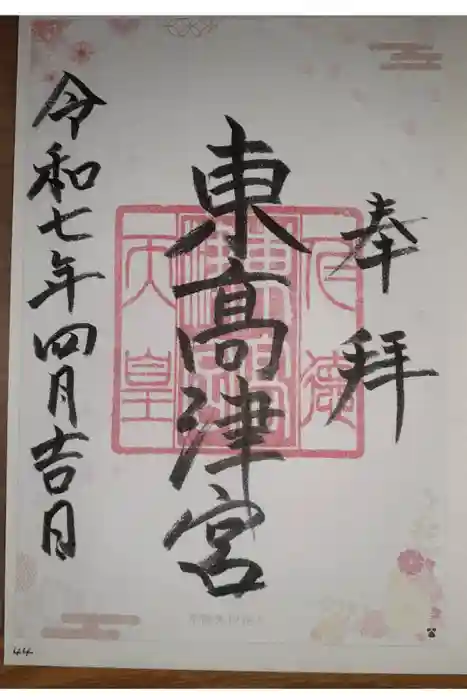 奉拝
東高津宮
仁徳
天皇
令和七年四月吉日